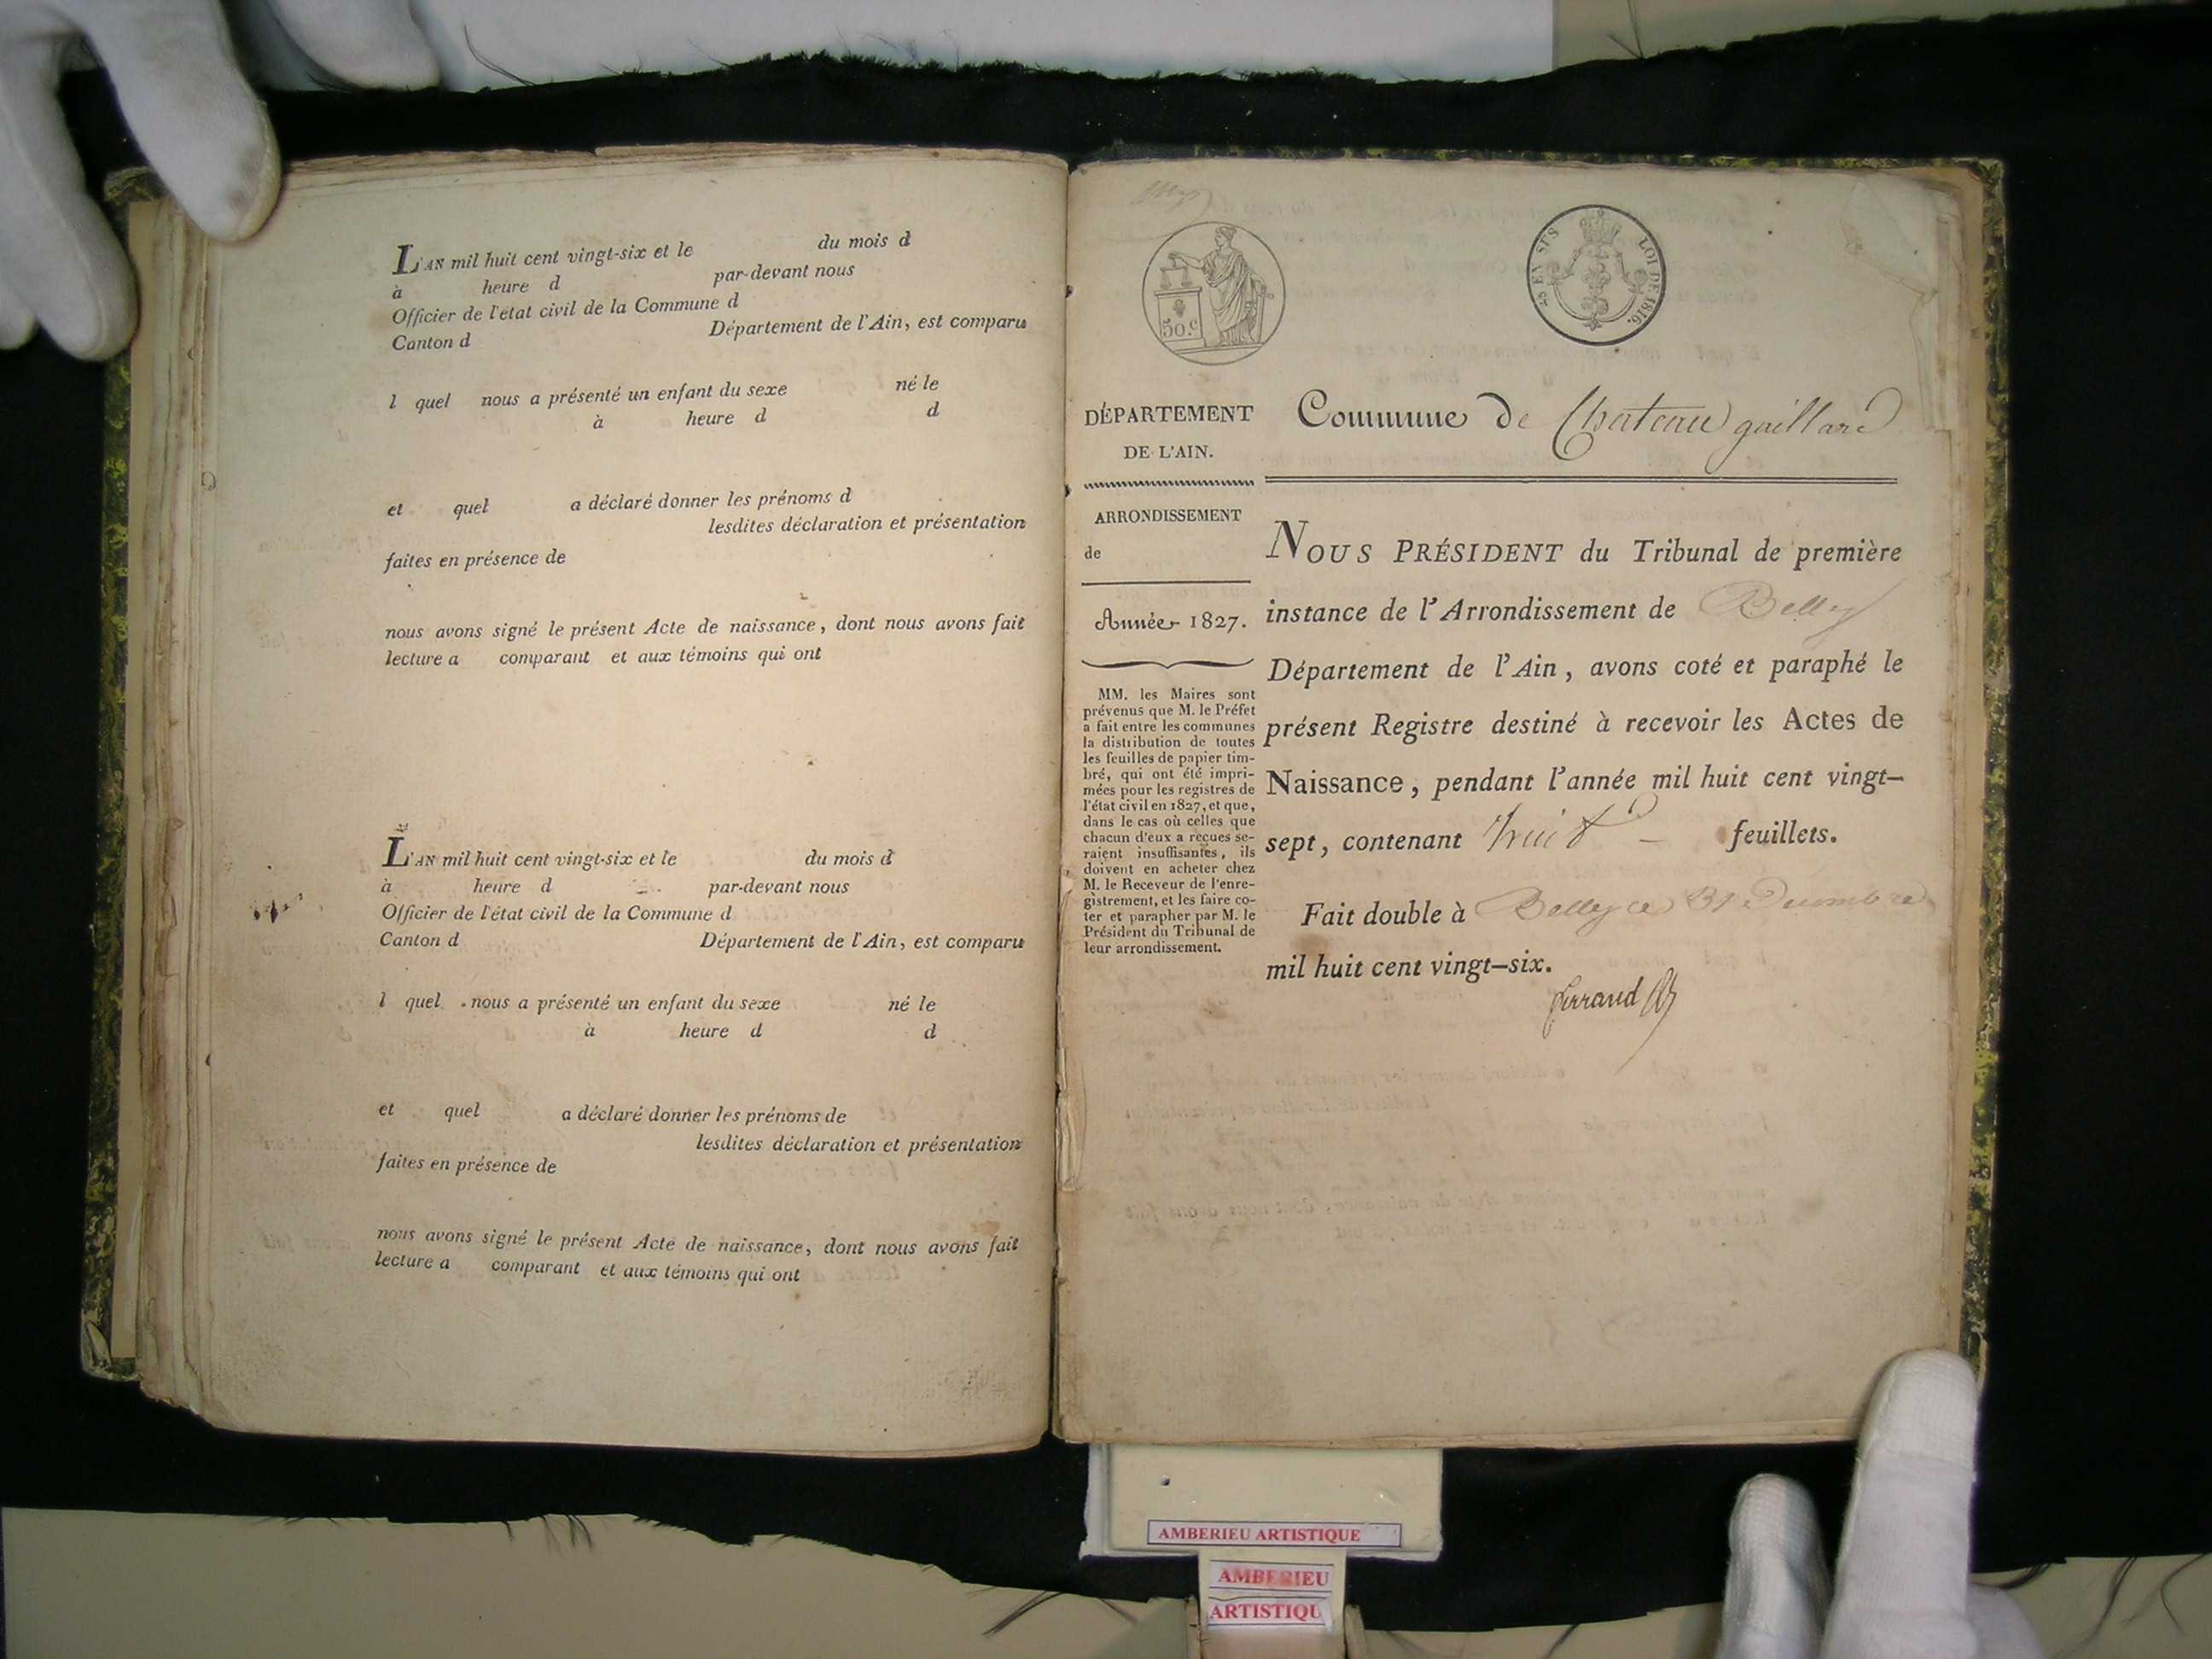 L'AN mil huit cent vingt-six et le du mois d
à heure d par-devant nous
Officier de l'état civil de la Commune d
Canton d Département de l'Ain, est comparu
l quel nous a présenté un enfant du sexe né le
à heure d d
et quel a déclaré donner les prénoms d
lesdites déclaration et présentation
faites en présence de
nous avons signé le présent Acte de naissance, dont nous avons fait
lecture a comparant et aux témoins qui ont
L'AN mil huit cent vingt-six et le du mois d
à heure d par-devant nous
Officier de l'état civil de la Commune d
Canton d Département de l'Ain, est comparu
l quel nous a présenté un enfant du sexe né le
à heure d d
et quel a déclaré donner les prénoms de
lesdites déclaration et présentation
faites en présence de
nous avons signé le présent Acte de naissance, dont nous avons fait
lecture a comparant et aux témoins qui ont
50.c
25 EN SUS
LOI DE 1816.
DÉPARTEMENT
DE L'AIN.
ARRONDISSEMENT
de
Année 1827.
MM. les Maires sont
prévenus que M. le Préfet
a fait entre les communes
la distribution de toutes
les feuilles de papier tim-
bré, qui ont été impri-
mées pour les registres de
l'état civil en 1827, et que,
dans le cas où celles que
chacun d'eux a reçues se-
raient insuffisantes, ils
doivent en acheter chez
M. le Receveur de l'enre-
gistrement, et les faire co-
ter et parapher par M. le
Président du Tribunal de
leur arrondissement.
Commune de Chateau gaillard
NOUS PRÉSIDENT du Tribunal de première
instance de l'Arrondissement de Belley
Département de l'Ain, avons coté et paraphé le
présent Registre destiné à recevoir les Actes de
Naissance, pendant l'année mil huit cent vingt-
sept, contenant huit – feuillets.
Fait double à Belley ce 31 Decembre
mil huit cent vingt-six.
ferrand
AMBERIEU ARTISTIQUE
AMBERIEU
ARTISTIQU